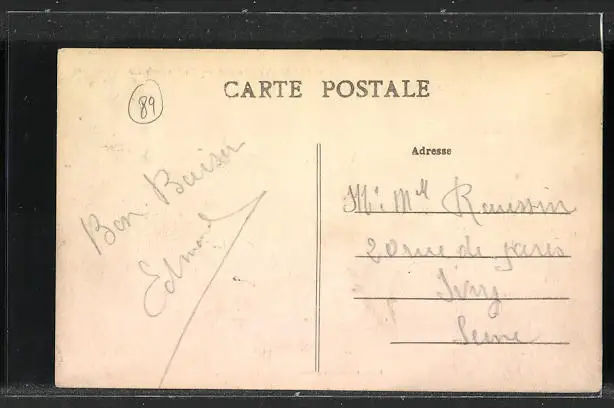 89
CARTE POSTALE
Adresse
Bon Baiser
Edmond
Mr Mlle
20 rue de paris
Ivry
Seine